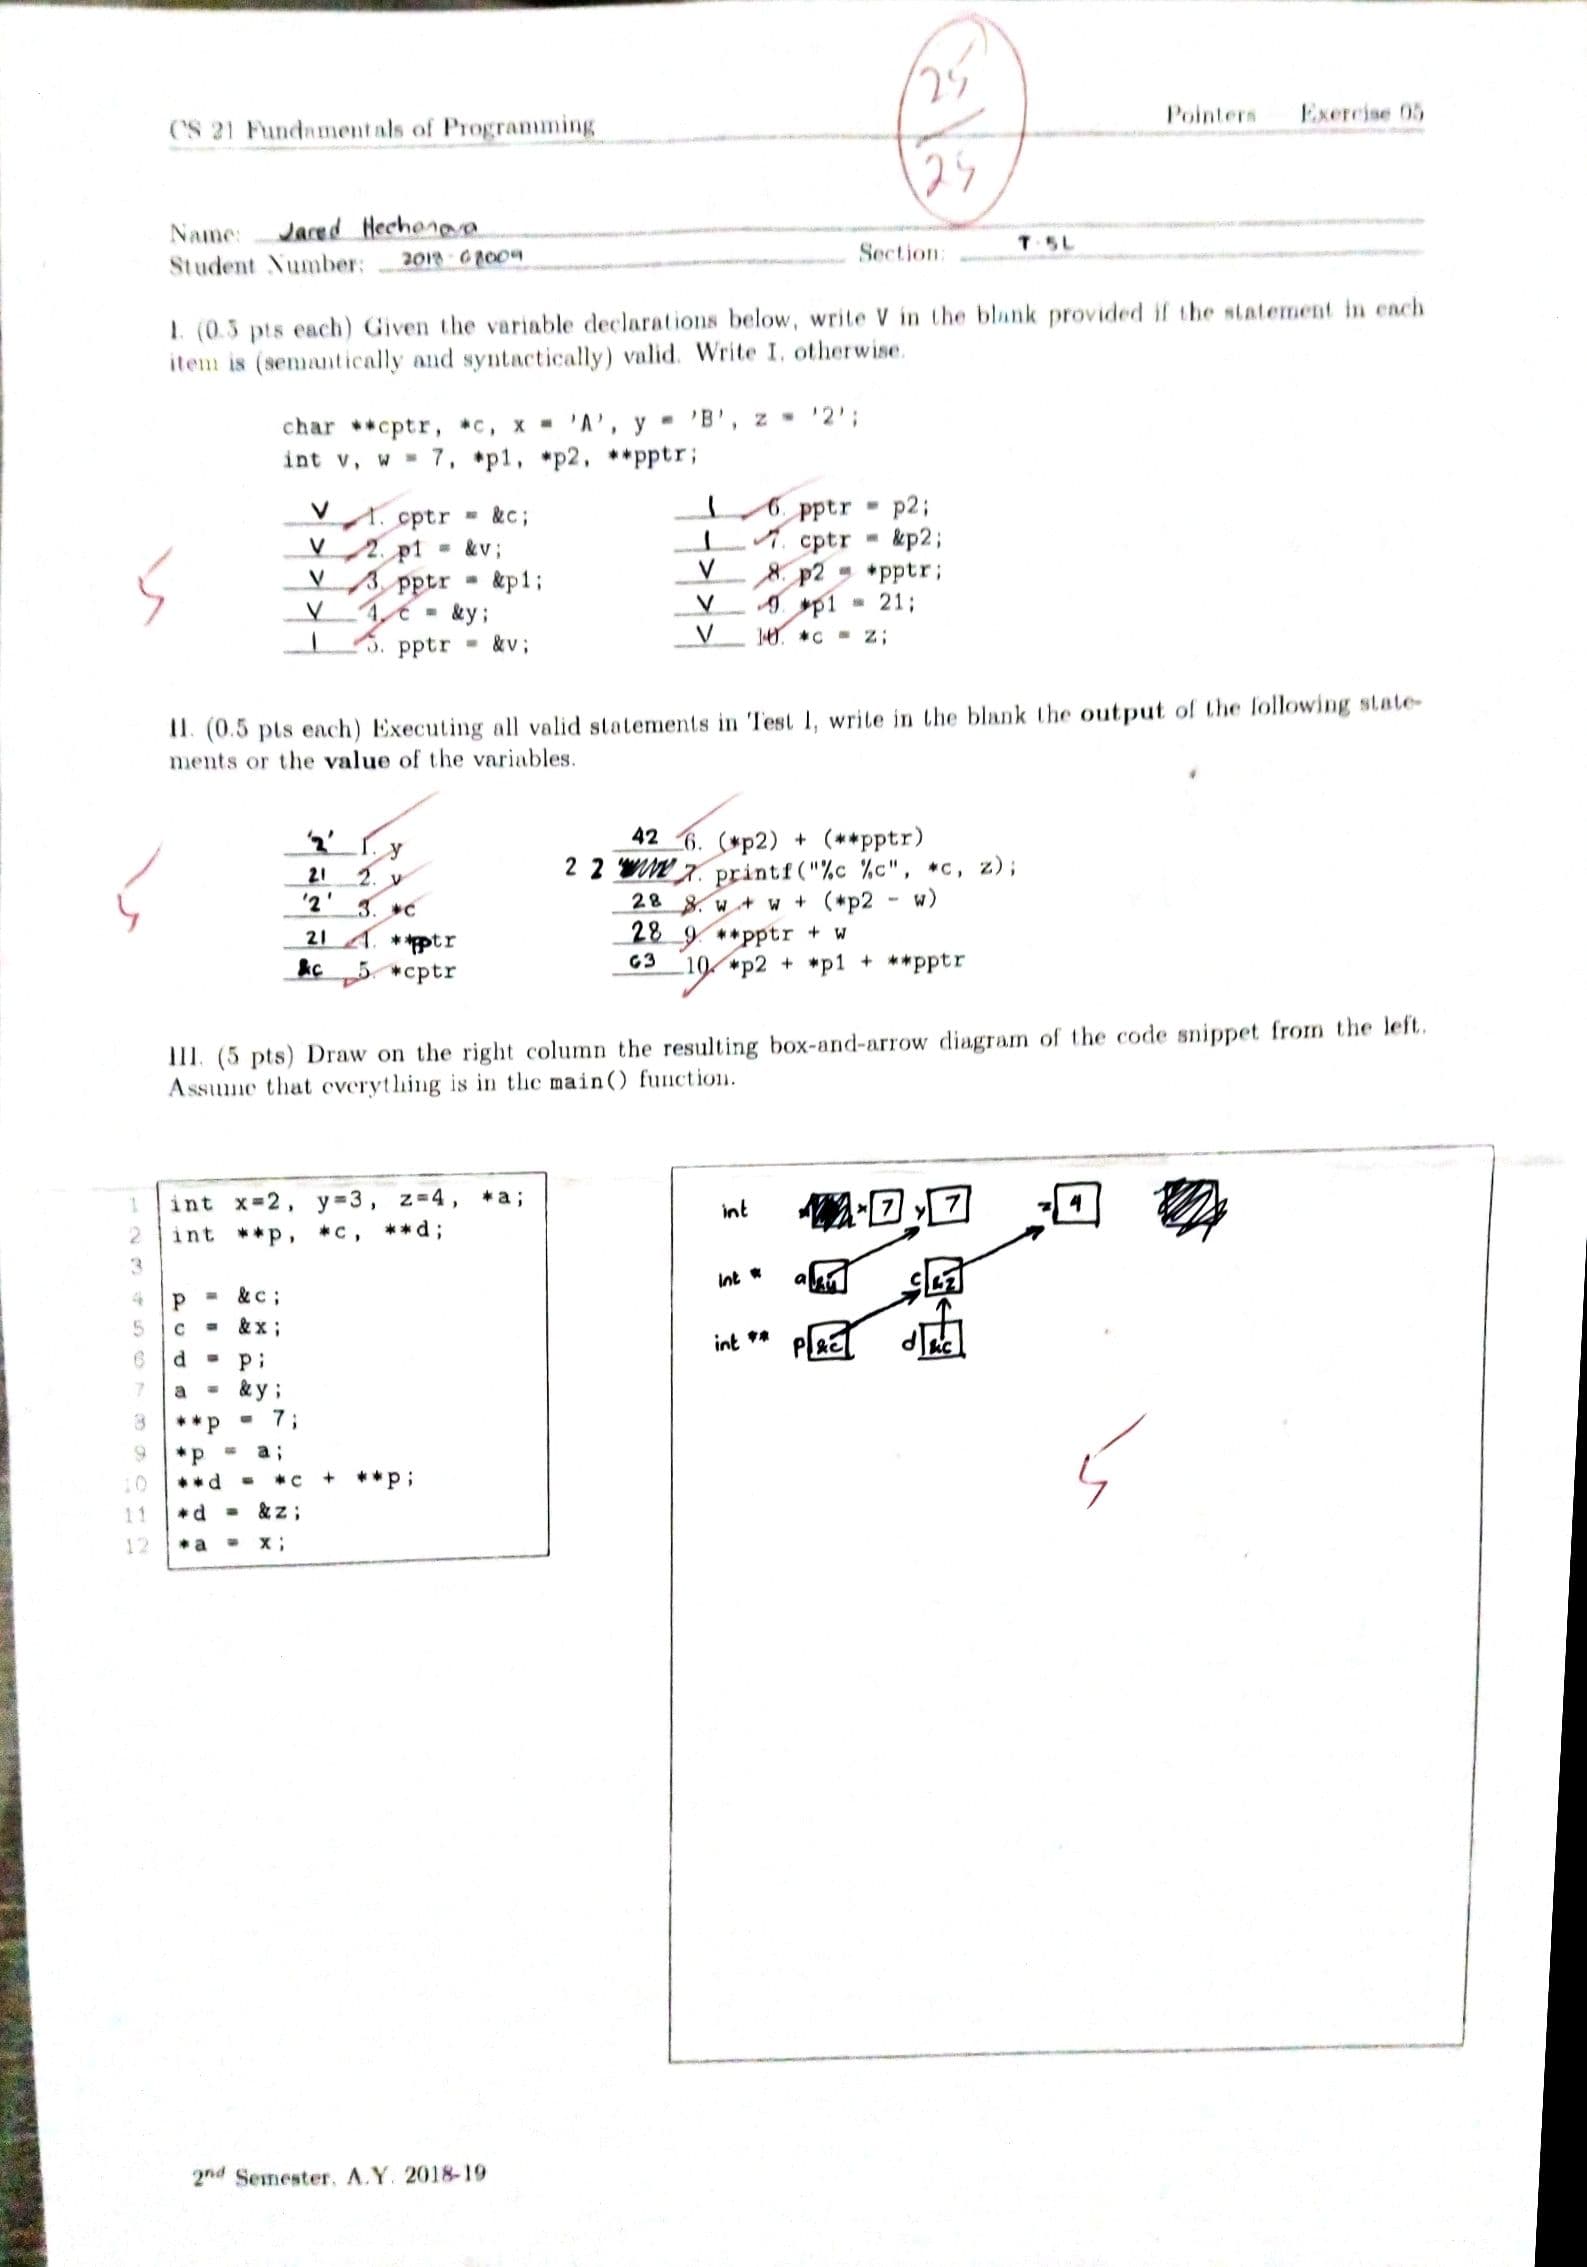 25
25
CS 21 Fundamentals of Programming Pointers Exercise 05
Name: Jared Hechanova
Student Number: Section: T-5L
I. (0.5 pts each) Given the variable declarations below, write V in the blank provided if the statement in each
item is (semantically and syntactically) valid. Write I, otherwise.
char **cptr, *c, x = 'A', y = 'B', z = '2';
int v, w = 7, *p1, *p2, **pptr;
V 1. cptr = &c; I 6. pptr = p2;
V 2. p1 = &v; I 7. cptr = &p2;
V 3. pptr = &p1; V 8. p2 = *pptr;
V 4. c = &y; V 9. *p1 = 21;
I 5. pptr = &v; V 10. *c = z;
5
II. (0.5 pts each) Executing all valid statements in Test I, write in the blank the output of the following state-
ments or the value of the variables.
'2' 1. y 42 6. (*p2) + (**pptr)
21 2. v 2 2 7. printf("%c %c", *c, z);
'2' 3. *c 28 8. w + w + (*p2 - w)
21 4. **pptr 28 9. **pptr + w
&c 5. *cptr 63 10. *p2 + *p1 + **pptr
5
III. (5 pts) Draw on the right column the resulting box-and-arrow diagram of the code snippet from the left.
Assume that everything is in the main() function.
1 int x=2, y=3, z=4, *a;
2 int **p, *c, **d;
3
4 p = &c;
5 c = &x;
6 d = p;
7 a = &y;
8 **p = 7;
9 *p = a;
10 **d = *c + **p;
11 *d = &z;
12 *a = x;
int x 7 y 7 z 4
int * a &y c &z
int ** p &c d &c
5
2nd Semester, A.Y. 2018-19